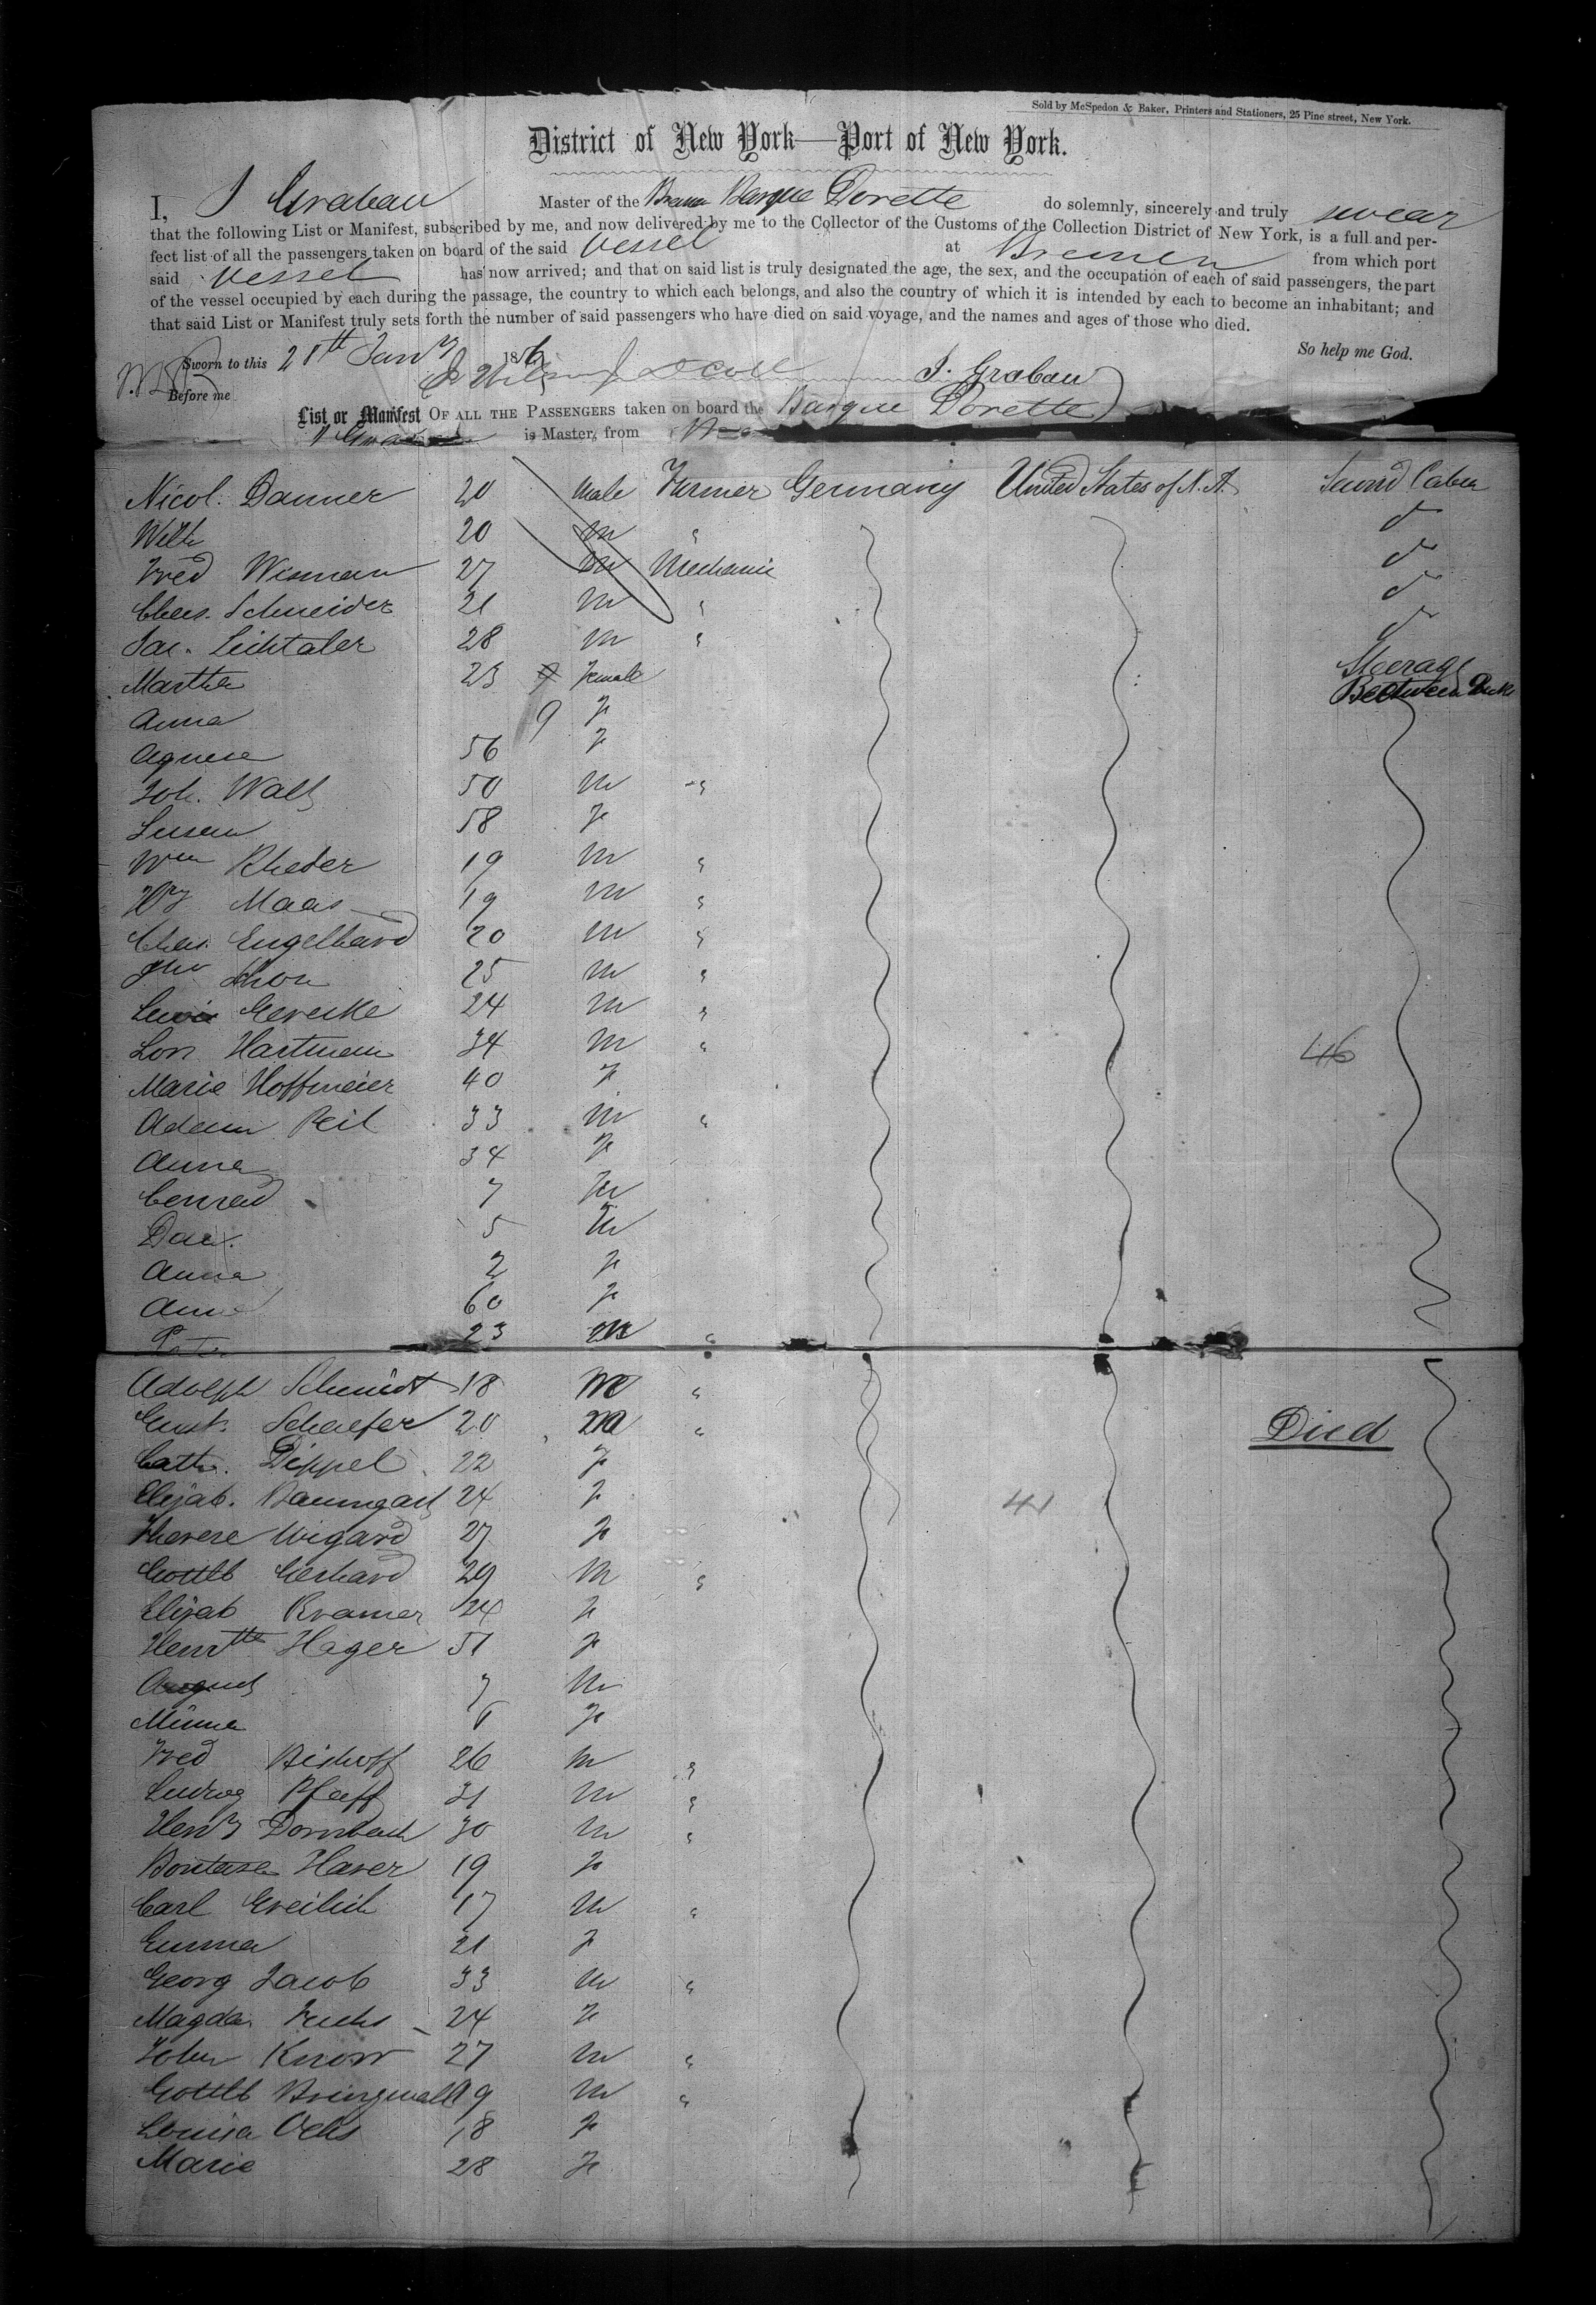 Sold by McSpedon & Baker, Printers and Stationers, 25 Pine street, New York.
District of New York—Port of New York.
I, J Grabau Master of the Brem Barque Dorette do solemnly, sincerely and truly swear
that the following List or Manifest, subscribed by me, and now delivered by me to the Collector of the Customs of the Collection District of New York, is a full and per-
fect list of all the passengers taken on board of the said Vessel at Bremen from which port
said Vessel has now arrived; and that on said list is truly designated the age, the sex, and the occupation of each of said passengers, the part
of the vessel occupied by each during the passage, the country to which each belongs, and also the country of which it is intended by each to become an inhabitant; and
that said List or Manifest truly sets forth the number of said passengers who have died on said voyage, and the names and ages of those who died.
So help me God.
Sworn to this 28th Jany 1856
J. Grabau
Before me
List or Manifest OF ALL THE PASSENGERS taken on board the Barque Dorette
is Master, from
Nicol. Danner 20 Male Farmer Germany United States of N. A. Second Cabin
20 m "
Fred Wisman 27 m Mechanic
Chas. Schneider 21 m "
Jac. Lichtaler 28 m "
Martha 23 Female Steerage
Anna 9 F Between Deck
Agnese 56 F
Joh. Waltz 50 m "
Susan 58 F
Wm Rheder 19 m "
Hy Maas 19 m "
Chas. Engelhard 20 m "
Jno Thon 25 m "
Louis Gereke 24 m "
Lor. Hartman 34 m "
46
Marie Hoffmeier 40 F
Adam Reil 33 m "
Anna 34 F
Conrad 7 m
5 m
Anna 2 F
60 F
Peter 23 m "
Adolph Schmidt 18 m "
Gust. Schaefer 20 m "
Died
Cath. Dippel 22 F
Elisab. Baumgart 24 F
41
Therese Wigard 27 F
Gottlb Gerhard 29 m "
Elisab Kramer 24 F
Henrtte Hager 51 F
August 7 m
Minna 6 F
Fred Bishoff 26 m "
Ludwig Pfaff 31 m "
Heny Dornbach 30 m "
Haver 19 F
Carl Greilich 17 m "
Emma 21 F
Georg Jacob 33 m "
Magda. Fuchs 24 F
John Knorr 27 m "
Gottlb Bringwald 19 m "
Louisa Ochs 18 F
Marie 28 F